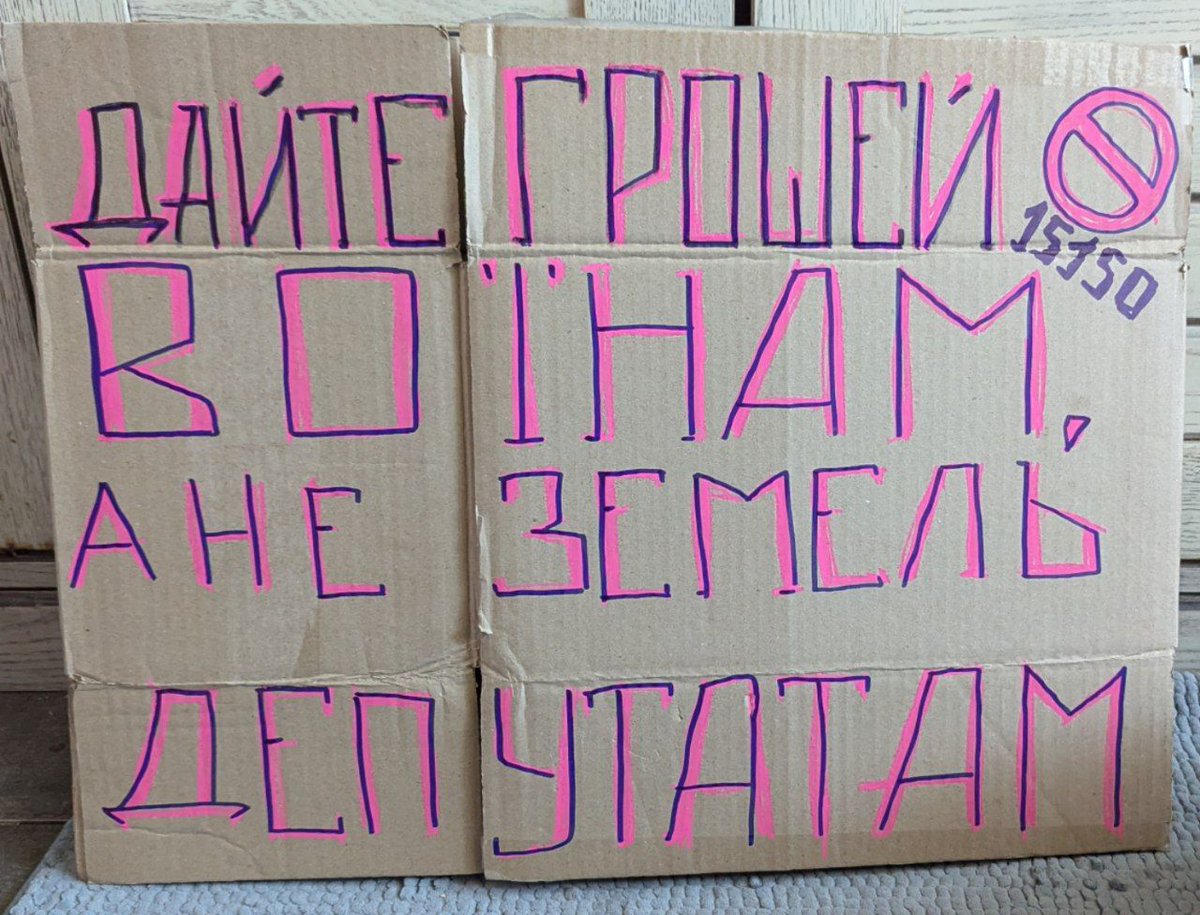 ДАЙТЕ ГРОШЕЙ
15150
ВОЇНАМ,
А НЕ ЗЕМЕЛЬ
ДЕПУТАТАМ